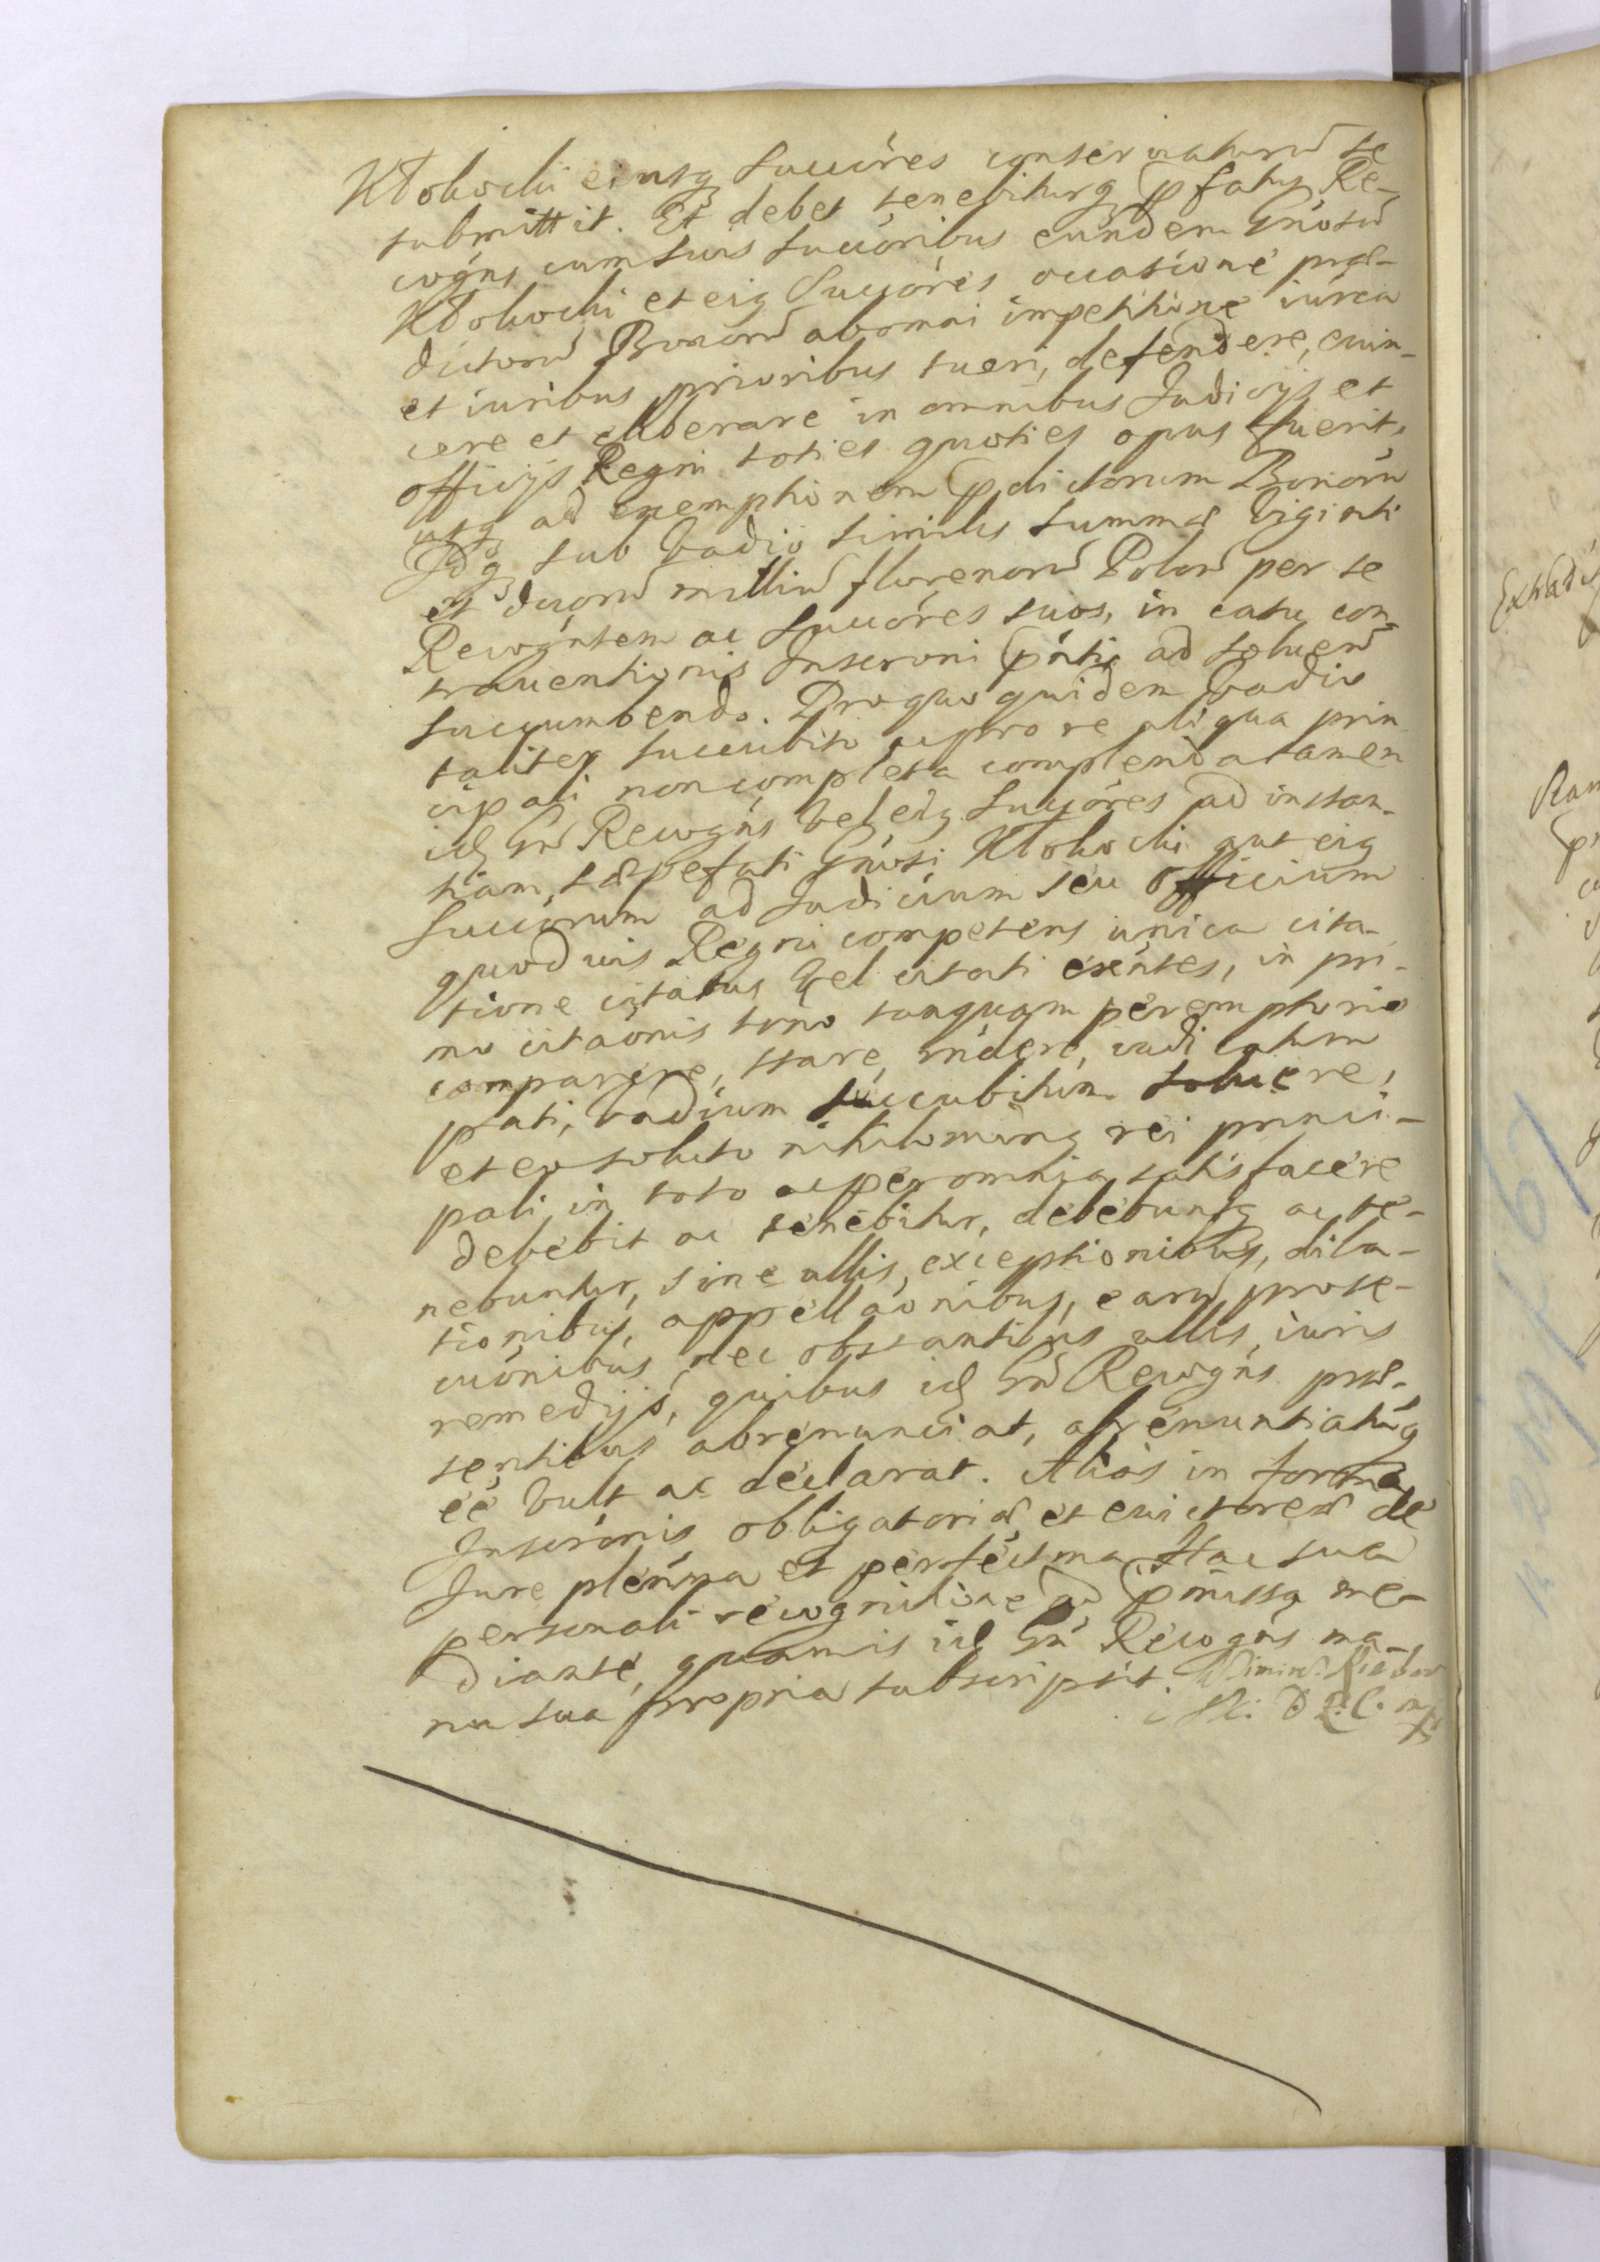 Kłokocki eiusq succ͠res conservaturũ se
submittit. Et debet tenebiturq p̃fatus Re-
cog͠ns cum suis succ͠oribus eundem G͠nosũ
Kłokocki et eiq Succ͠ores occasione præ-
dictorũ Bonorũ ab omni impetitione iurea
et iuribus prioribus tueri, defendere, evin-
cere et eliberare in omnibus Judicijs et
officijs Regni toties quoties opus fuerit,
usq ad exemptionem p̃dictorum Bonorũ
Idq sub vadio similis summæ Viginti
et duorũ milliũ florenorũ Polon̄ per se
Recog͠ntem ac succ͠ores suos, in casu con-
traventionis Inscr͠oni p͠ntis ad solvend̄
succumbendo. Pro quo quidem vadio
taliter succubito ac pro re aliqua prin
cipali non completa complenda tamen
idq Gn̄ Recog͠ns vel eiq Succ͠ores ad instan-
tiam, sæpefati G͠nosi Kłokocki aut eiq
Succ͠orum ad Judicium seu Officium
quodvis Regni competens unica cita-
tione citatus vel citati ex͠ntes, in pri-
mo citao͠nis t͠rno tanquam peremptorio
comparere, stare, r͠ndere, iudicatum
pati, vadium succubitum solvere,
et eo soluto nihilominq rei princi-
pali in toto ac per omnia satisfacere
debebit ac tenebitur, debebuntq ac te-
nebuntur, sine ullis, exceptionibus, dila-
tionibus, appellao͠nibus, earũ prose-
cuo͠nibus, nec obstantibus ullis iuris
remedijs, quibus idq Gn̄ Recog͠ns præ-
sentibus abrenunciat, abrenuntiatũq
e͠e vult ac declarat. Alias in forma
Inscr͠onis obligatoriæ et evictoreæ de
Jure plen͠ma et perfectissma Hac sua
personali recognitione ad p͠missa me-
diante, quamis idq Gn̄ Recog͠ns ma-
nu sua propria subscripsit.